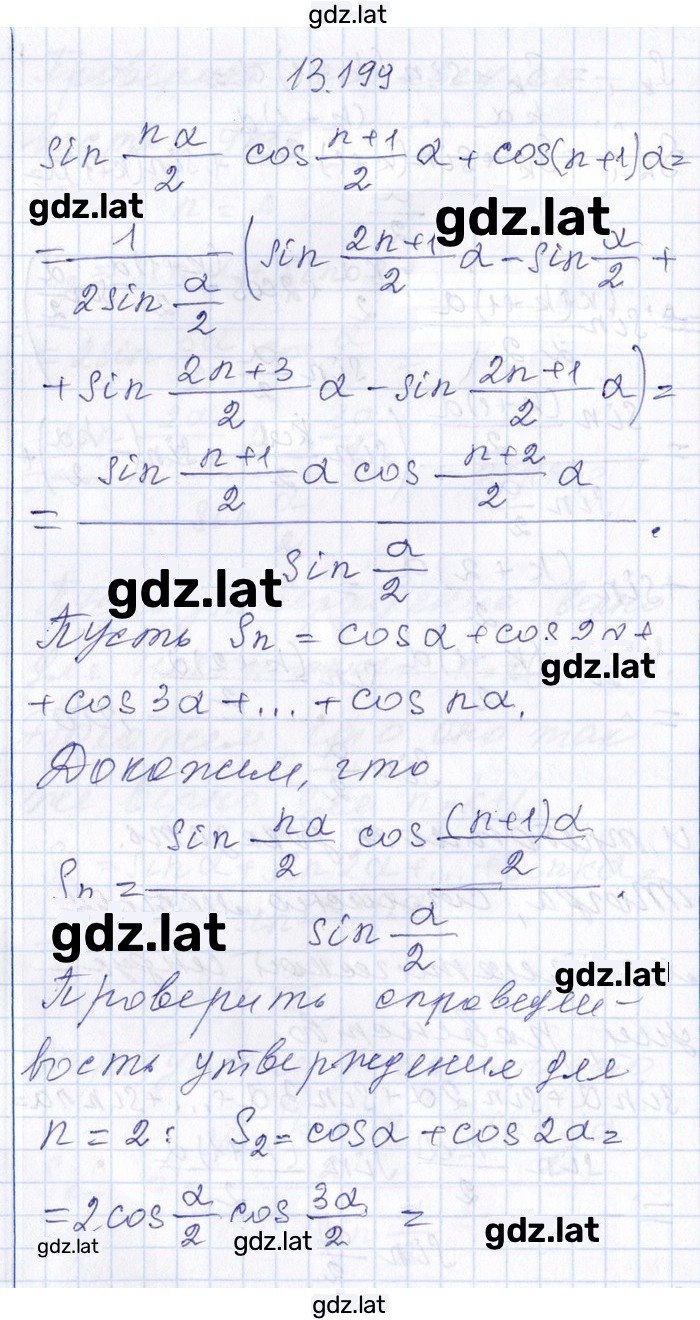 gdz.lat
13.199
sin nα/2 cos n+1/2 α + cos(n+1)α =
gdz.lat
gdz.lat
= 1/(2 sin α/2) (sin 2n+1/2 α - sin α/2 +
+ sin 2n+3/2 α - sin 2n+1/2 α) =
= (sin n+1/2 α cos n+2/2 α)/(sin α/2).
gdz.lat
Пусть Sn = cos α + cos 2α +
gdz.lat
+ cos 3α + ... + cos nα.
Докажем, что
Sn = (sin nα/2 cos (n+1)α/2)/(sin α/2).
gdz.lat
gdz.lat
Проверить справедли-
вость утверждения для
n = 2: S2 = cos α + cos 2α =
= 2 cos α/2 cos 3α/2 =
gdz.lat
gdz.lat
gdz.lat
gdz.lat